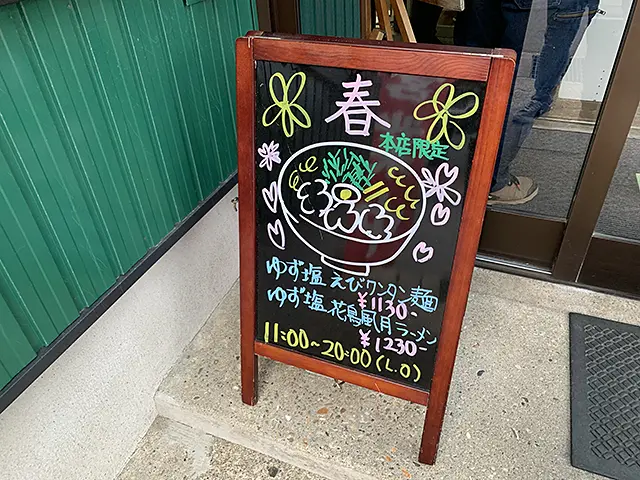 春
本店限定
ゆず塩 えびワンタン麺
¥1130-
ゆず塩 花鳥風月ラーメン
¥1230-
11:00~20:00(L.O)